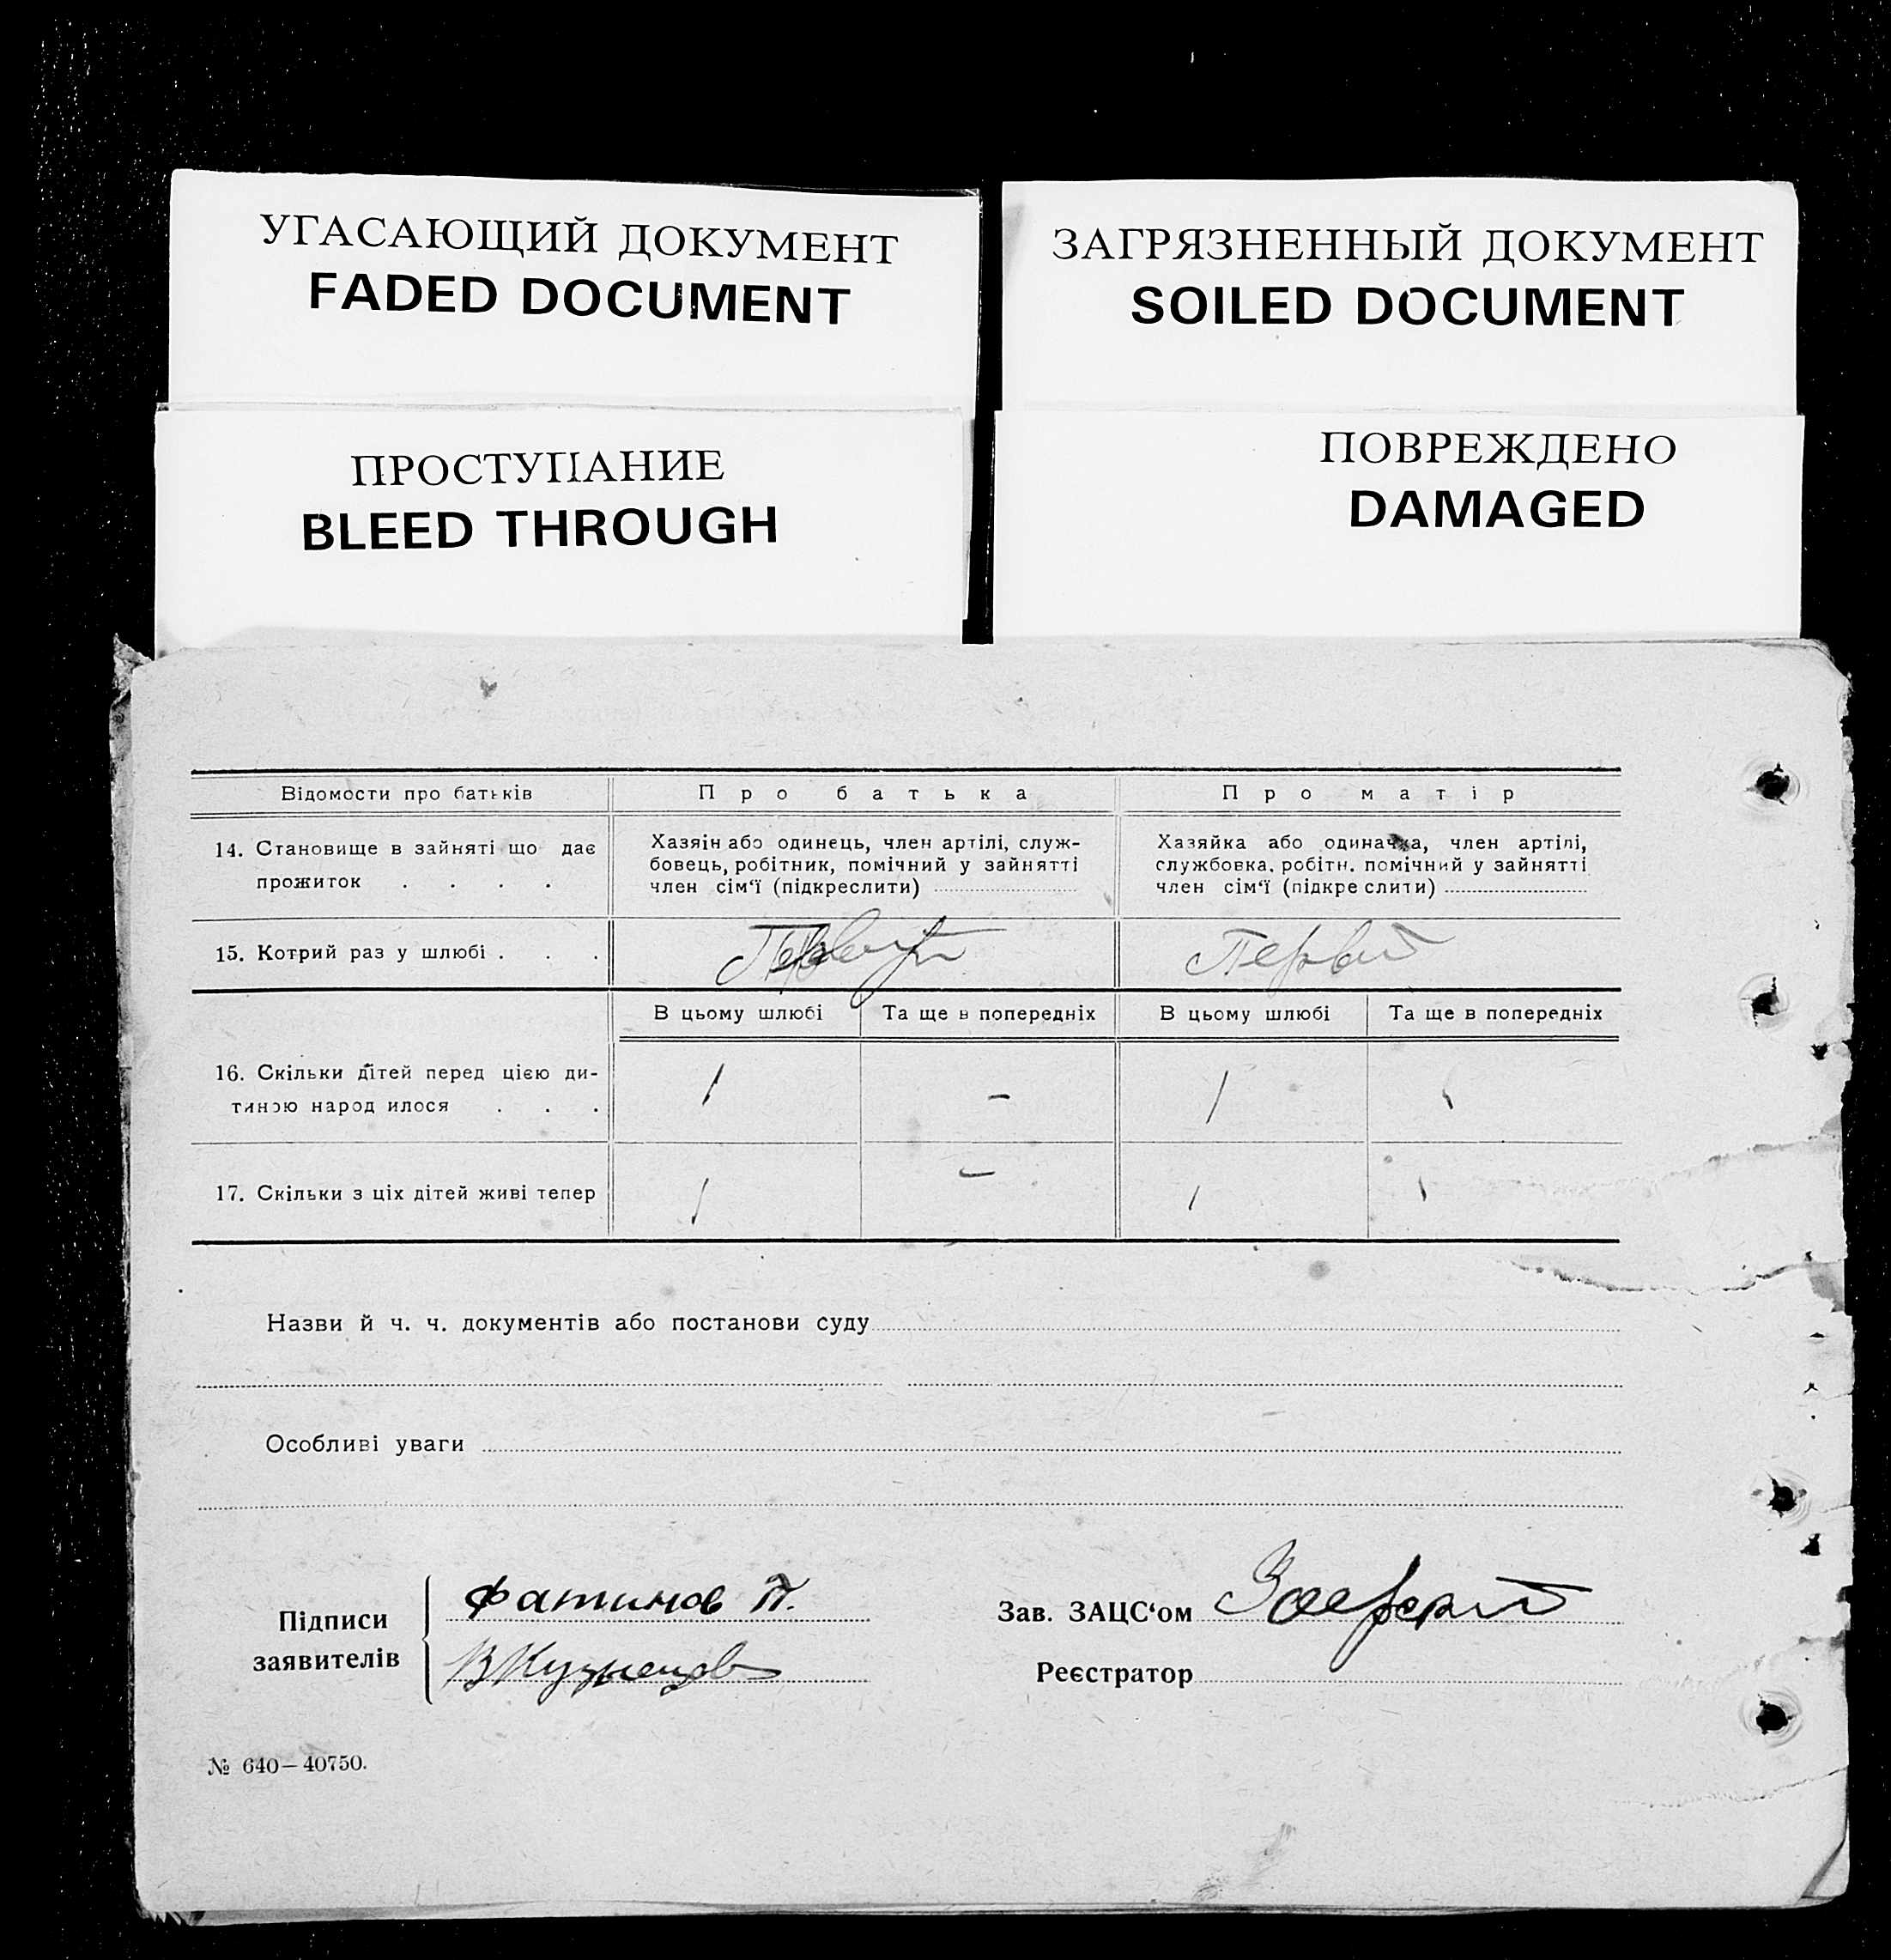 УГАСАЮЩИЙ ДОКУМЕНТ
FADED DOCUMENT
ЗАГРЯЗНЕННЫЙ ДОКУМЕНТ
SOILED DOCUMENT
ПРОСТУПАНИЕ
BLEED THROUGH
ПОВРЕЖДЕНО
DAMAGED
Відомости про батьків
Про батька
Про матір
14. Становище в зайняті що дає
прожиток . . . .
Хазяін або одинець, член артілі, служ-
бовець, робітник, помічний у зайнятті
член сім‘ї (підкреслити)
Хазяйка або одиначка, член артілі,
службовка, робітн. помічний у зайнятті
член сім‘ї (підкреслити)
15. Котрий раз у шлюбі . . .
Первий
В цьому шлюбі
Та ще в попередніх
В цьому шлюбі
Та ще в попередніх
16. Скільки дітей перед цією ди-
тиною народилося . . .
1
–
1
17. Скільки з ціх дітей живі тепер
1
–
1
Назви й ч. ч. документів або постанови суду
Особливі уваги
Підписи
заявителів
Фатинов П.
В Кузнецов
Зав. ЗАЦС‘ом
Реєстратор
№ 640–40750.